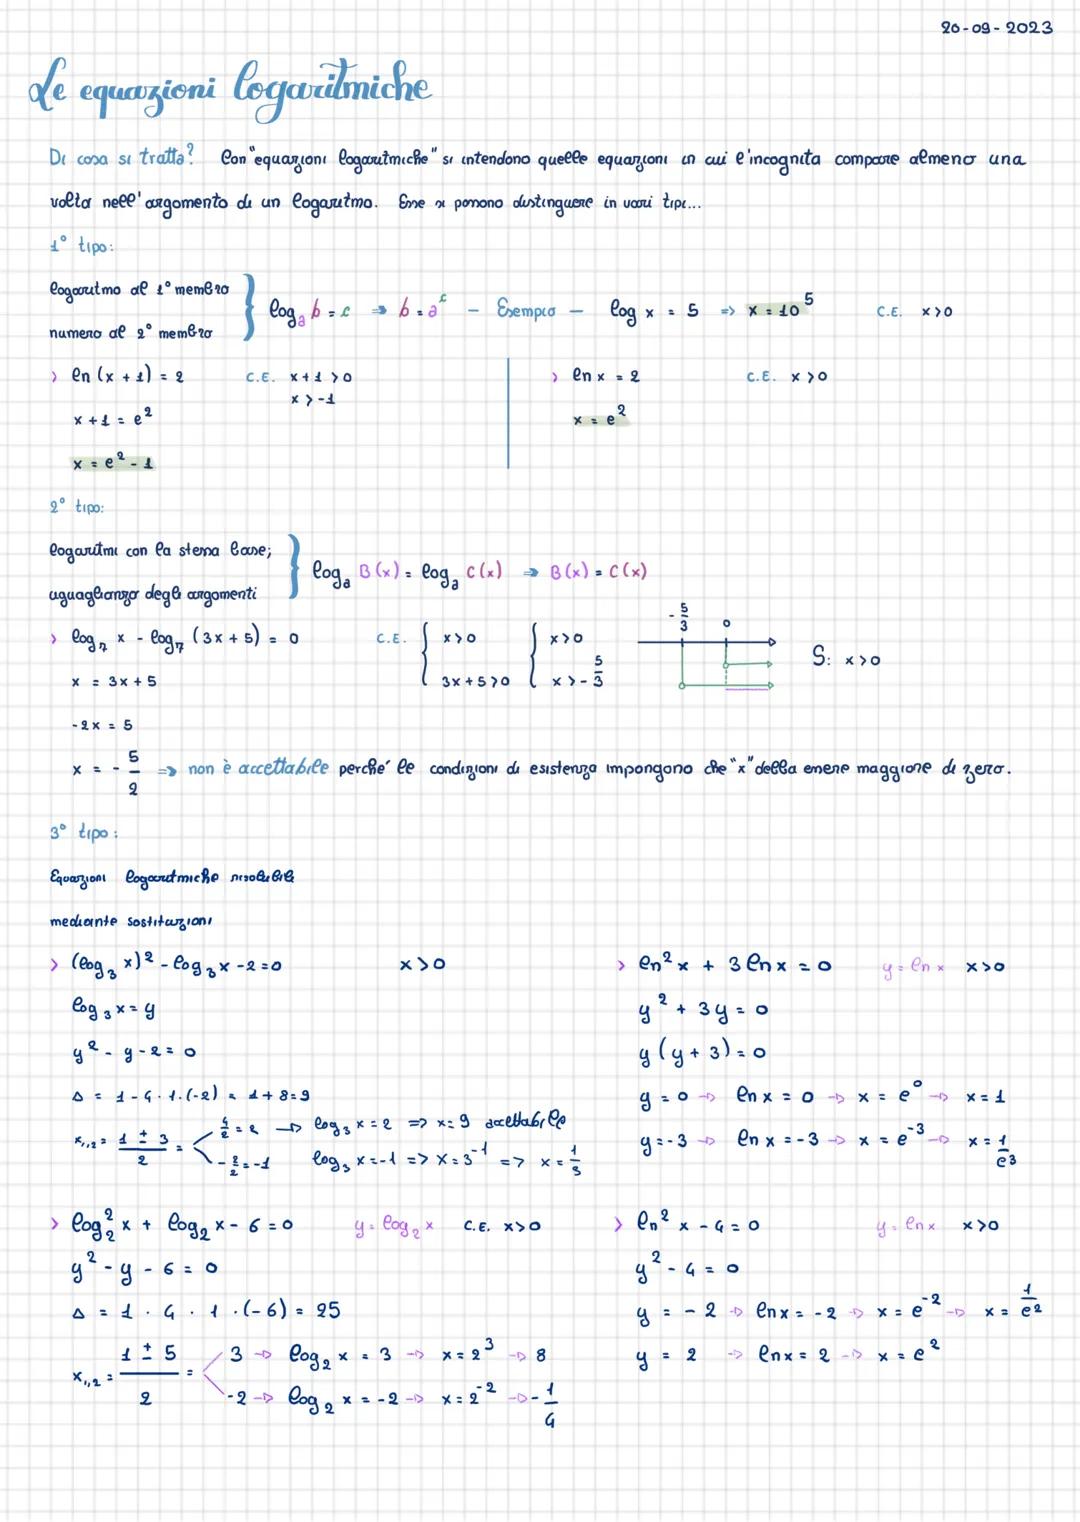 20-09-2023
Le equazioni logaritmiche
Di cosa si tratta? Con "equazioni logaritmiche" si intendono quelle equazioni in cui l'incognita compare almeno una
volta nell'argomento di un logaritmo. Esse si possono distinguere in vari tipi...
1° tipo:
logaritmo al 1° membro
numero al 2° membro
logₐ b = c ⇒ b = aᶜ – Esempio – log x = 5 ⇒ x = 10⁵ C.E. x > 0
> ln (x + 1) = 2 C.E. x + 1 > 0
x > -1
x + 1 = e²
x = e² - 1
> ln x = 2 C.E. x > 0
x = e²
2° tipo:
logaritmi con la stessa base;
uguaglianza degli argomenti
logₐ B(x) = logₐ C(x) ⇒ B(x) = C(x)
> log₇ x - log₇ (3x + 5) = 0 C.E. { x > 0 { x > 0
3x + 5 > 0 x > - 5/3
- 5/3 0
S: x > 0
x = 3x + 5
-2x = 5
x = - 5/2 ⇒ non è accettabile perché le condizioni di esistenza impongono che "x" debba essere maggiore di zero.
3° tipo:
Equazioni logaritmiche risolubili
mediante sostituzioni
> (log₃ x)² - log₃ x - 2 = 0 x > 0
log₃ x = y
y² - y - 2 = 0
Δ = 1 - 4 · 1 · (-2) = 1 + 8 = 9
x₁,₂ = (1 ± 3)/2 = 4/2 = 2 → log₃ x = 2 ⇒ x = 9 accettabile
- 2/2 = -1 log₃ x = -1 ⇒ x = 3⁻¹ ⇒ x = 1/3
> ln² x + 3 ln x = 0 y = ln x x > 0
y² + 3y = 0
y (y + 3) = 0
y = 0 → ln x = 0 → x = e⁰ → x = 1
y = -3 → ln x = -3 → x = e⁻³ → x = 1/e³
> log₂² x + log₂ x - 6 = 0 y = log₂ x C.E. x > 0
y² - y - 6 = 0
Δ = 1 · 4 · 1 · (-6) = 25
x₁,₂ = (1 ± 5)/2 = 3 → log₂ x = 3 → x = 2³ → 8
-2 → log₂ x = -2 → x = 2⁻² → - 1/4
> ln² x - 4 = 0 y = ln x x > 0
y² - 4 = 0
y = - 2 → ln x = - 2 → x = e⁻² → x = 1/e²
y = 2 → ln x = 2 → x = e²